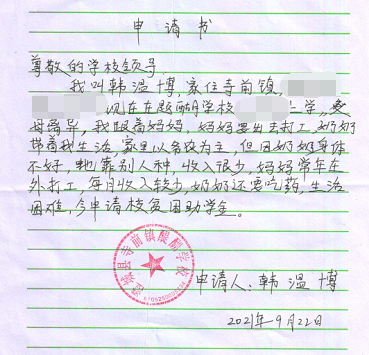 申请书
尊敬的学校领导
我叫韩温博,家住寺前镇,
现在在醍醐学校 上学,父
母离异,我跟着妈妈,妈妈要出去打工,奶奶
带着我生活,家里以务农为主,但因奶奶身体
不好,地靠别人种,收入很少,妈妈常年在
外打工,每月收入较少,奶奶还要吃药,生活
困难,今申请校贫困助学金。
澄城县寺前镇醍醐学校
申请人:韩温博
2021年9月22日